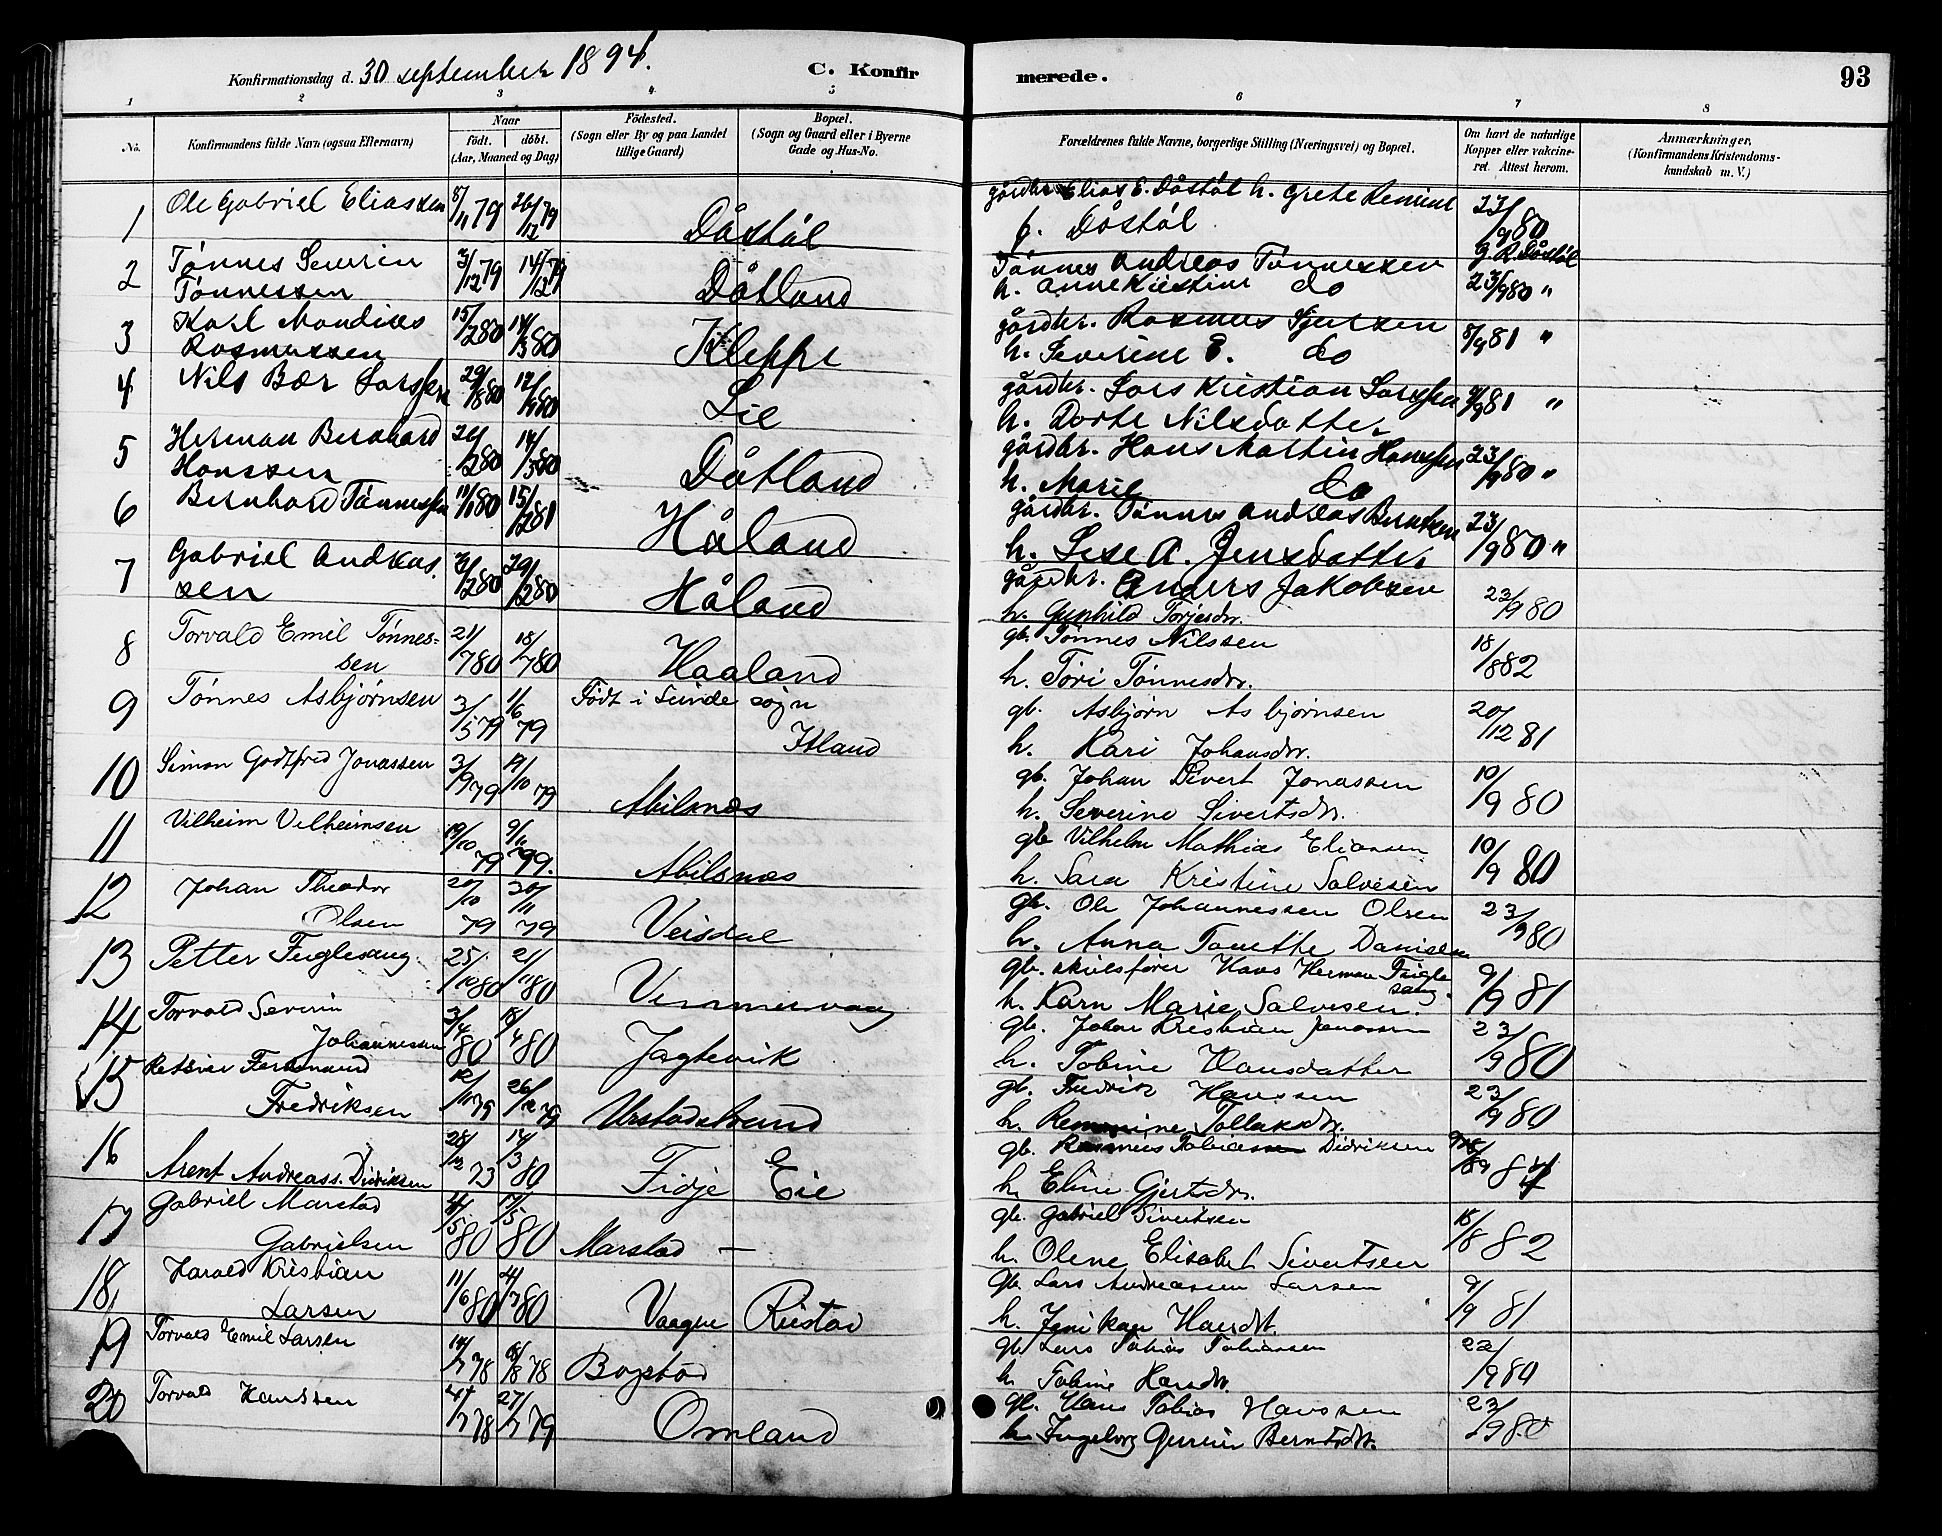 Konfirmationsdag d. 30 september 1894. C. Konfirmerede. 93
1 2 3 4 5 6 7 8
No. Konfirmandens fulde Navn (ogsaa Efternavn) Naar født. døbt. (Aar, Maaned og Dag) Fødested. (Sogn eller By og paa Landet tillige Gaard) Bopæl. (Sogn og Gaard eller i Byerne Gade og Hus-No. Forældrenes fulde Navne, borgerlige Stilling (Næringsvei) og Bopæl. Om havt de naturlige Kopper eller vakcineret. Attest herom. Anmærkninger, (Konfirmandens Kristendomskundskab m. V.)
1 Ole Gabriel Eliassen 8/11 79 26/12 79 Dåstøl gårdbr. Elias E. Dåstøl h. Grete
Dåstöl 23/9 80
2 Tønnes Severin 3/12 79 14/12 79 Dåtland Tønnes Andreas Tønnessen
Tønnessen h. Anne Kirstine do 23/9 80 "
3 Karl Mandius 15/2 80 14/3 80 Kleppe gårdbr. Rasmus
Rasmussen h. Severine E. do 8/9 81 "
4 Nils Bær Larssen 29/8 80 12/9 80 Lie gårdbr. Lars Kristian Larssen
h. Dorte Nilsdatter 81 "
5 Herman Bernhard 14/3 80 Dåtland gårdbr. Hans Martin Hanssen
Hanssen h. Marie do 23/9 80 "
6 Bernhard Tønnessen 15/2 81 Håland gårdbr. Tønnes Andreas Berntsen
h. Lise A. Jensdatter 23/9 80 "
7 Gabriel Andreas- 29/2 80 Håland gårdbr. Anders Jakobsen
sen h. Gunhild Torjesdr. 23/9 80
8 Torvald Emil Tønnes- 21/7 80 18/7 80 Haaland gb. Tønnes Nilssen
sen h. Töri Tønnesdr. 18/8 82
9 Tønnes Asbjørnsen 3/5 79 1/6 79 Født i Lunde sogn gb. Asbjørn Asbjørnsen
Itland h. Kari Johansdr. 20/12 81
10 Simon Godtfred Jonassen 3/9 79 19/10 79 Abilsnæs gb. Johan Sivert Jonassen
h. Severine Sivertsdr. 10/9 80
11 Vilheim Vilheimsen 19/10 79 9/11 79. Abilsnæs gb Vilhelm Mathias Eliassen
h. Sara Kristine Salvesen 10/9 80
12 Johan Theodor 20/10 79 30/11 79 Veisdal gb. Ole Johannessen Olsen
Olsen h. Anna Tonette Danielsen 23/9 80
13 Petter Fuglesang 25/10 80 21/11 80 gb. Hans Herman Fuglesang
h. Karn Marie Salvesen. 9/9 81
14 Torvald Severin 3/4 80 18/4 80 Jagtevik gb. Johan Kristian
Johannessen h. Tobine Hansdatter 23/9 80
15 Ferdinand 12/11 79 26/12 79 Urstadstrand gb. Fredrik Hanssen
Fredriksen h. Tollaksdr. 23/9 80
16 28/12 73 14/3 80 Fidje Eie gb. Rasmus Didriksen
Arent Andreass. Didriksen h. Eline Gjertsdr.
17 Gabriel Marstad 4/5 80 17/5 80 Marstad — gb. Gabriel Sivertsen
Gabrielsen h. Olene Elisabet Sivertsen 18/8 82
18 Harald Kristian 11/6 80 4/7 80 Vaagne Ristad gb. Lars Andreassen Larsen
Larsen h. Hansdt. 9/9 81
19 Torvald Emil Larsen 78 78 Bogstad gb Lars Tobias Tobiassen
h. Tobine Hansdr.
20 Torvald Hanssen 78 79 Omland gb. Hans Tobias Hanssen
h. Ingeborg Berntsdt. 23/9 80